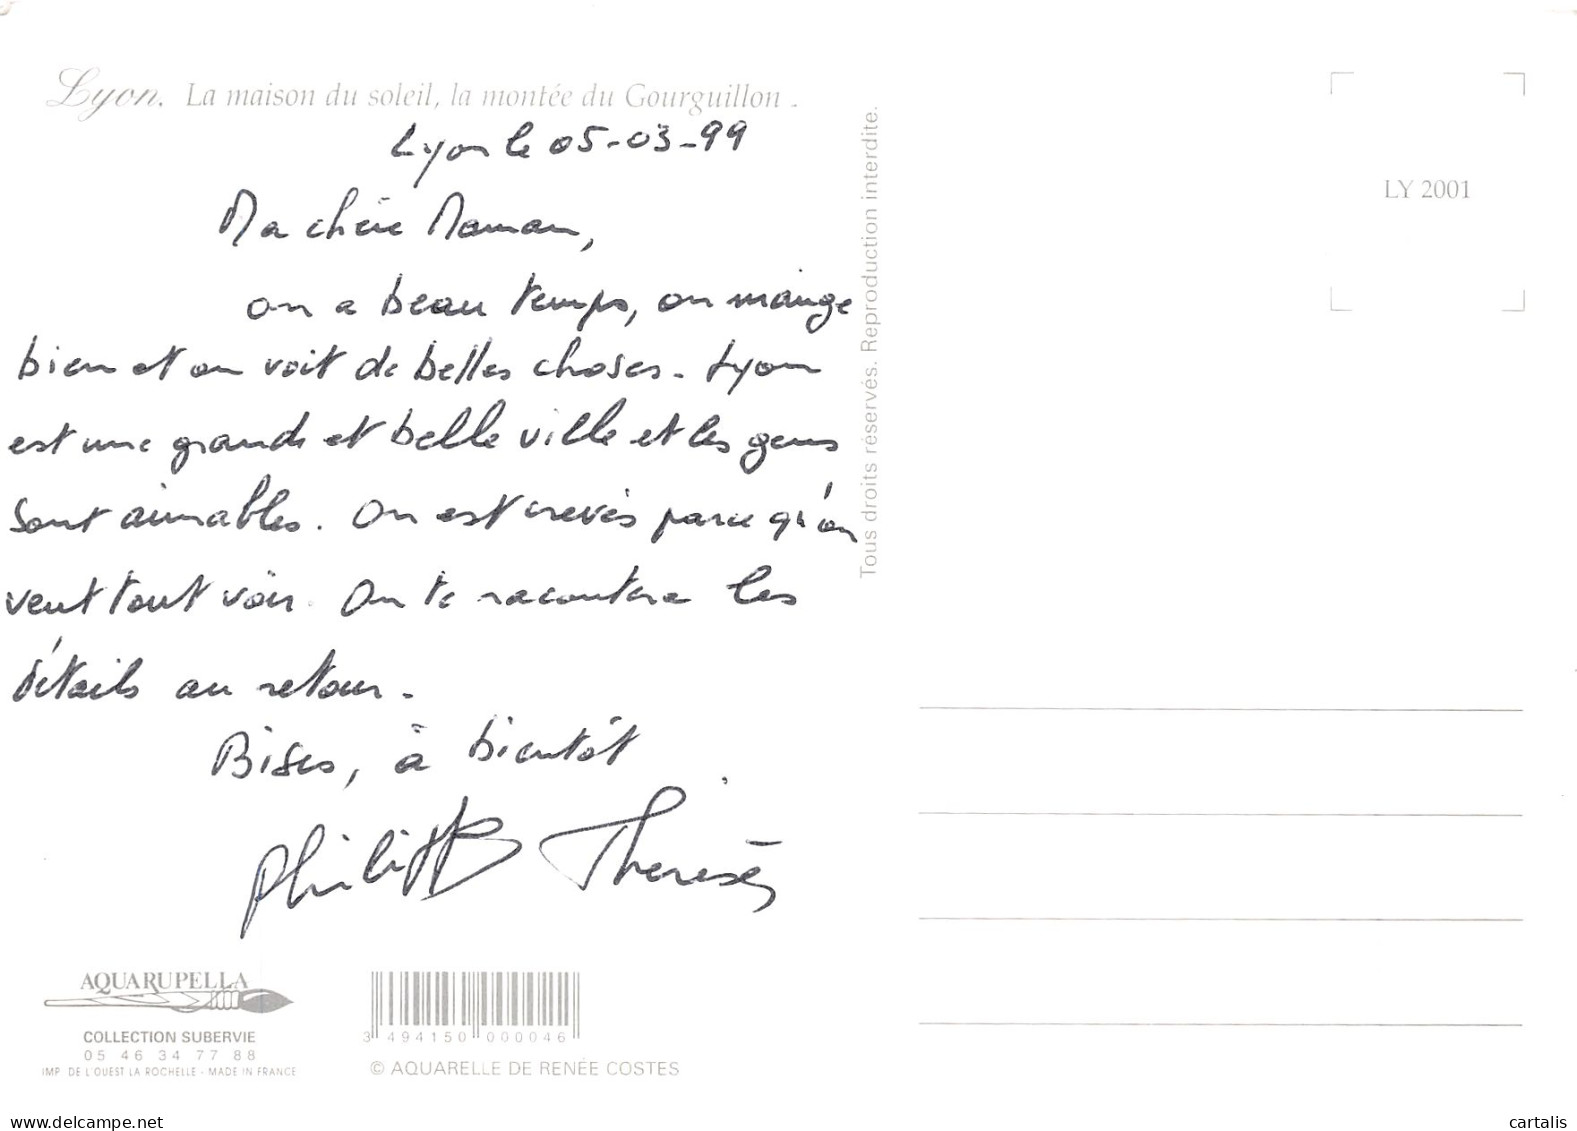 Lyon. La maison du soleil, la montée du Gourguillon.
Lyon le 05-03-99
Ma chère Maman,
on a beau temps, on mange
bien et on voit de belles choses. Lyon
est une grande et belle ville et les gens
sont aimables. On est crevés parce qu'on
veut tout voir. On te racontera les
détails au retour.
Bises, à bientôt
Philippe Thérèse
Tous droits réservés. Reproduction interdite.
LY 2001
AQUARUPELLA
COLLECTION SUBERVIE
05 46 34 77 88
IMP. DE L'OUEST LA ROCHELLE - MADE IN FRANCE
3 494150 000046
© AQUARELLE DE RENÉE COSTES
www.delcampe.net
cartalis